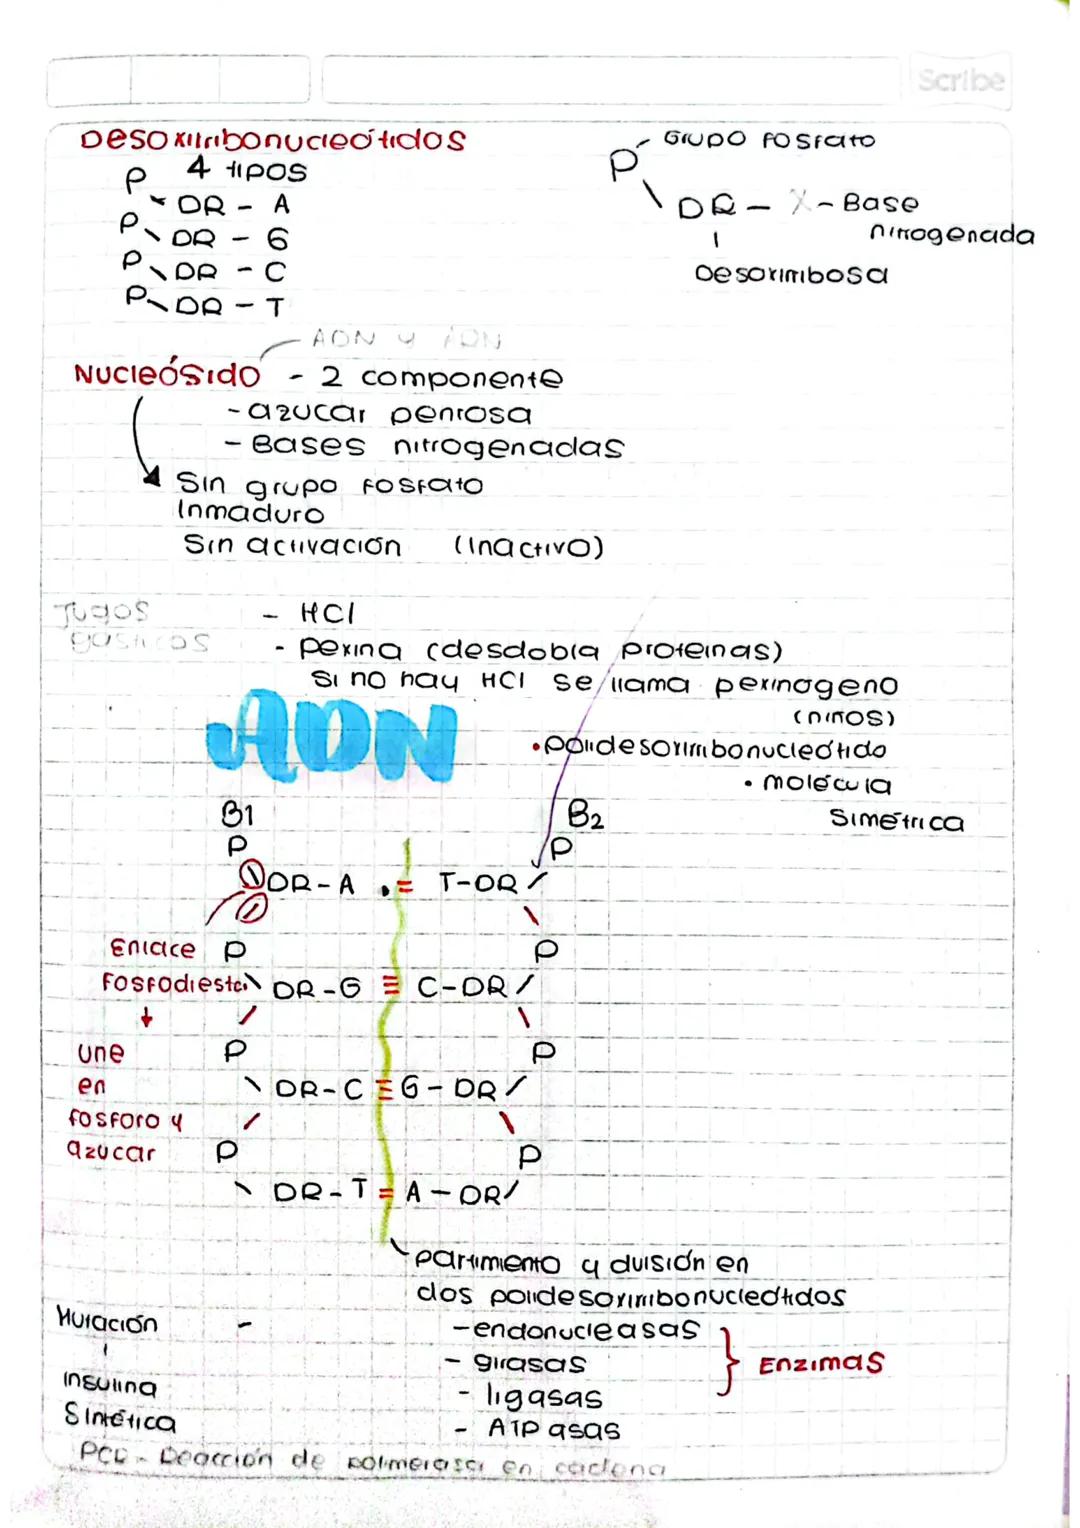 Scribe
Desoxirribonucleótidos
4 tipos
P
DR - A
P
DR - G
P
DR - C
P
DR - T
P - Grupo fosfato
DR - X - Base
nitrogenada
Desoxirribosa
ADN y ARN
Nucleósido - 2 componente
- azucar pentosa
- Bases nitrogenadas
Sin grupo fosfato
Inmaduro
Sin activación (Inactivo)
Jugos
gástricos
- HCl
- pexina (desdobla proteinas)
Si no hay HCl se llama pexinogeno
(niños)
ADN
•polidesoxirribonucleótido
• molécula
Simétrica
B1
B2
P
P
DR - A = T - DR
Enlace
P
P
Fosfodiester
DR - G ≡ C - DR
une
P
P
en
DR - C ≡ G - DR
fosforo y
azucar
P
P
DR - T = A - DR
partimiento y división en
dos polidesoxirribonucleótidos
Mutación -
- endonucleasas
- girasas
Enzimas
Insulina
- ligasas
Sintética
- ATP asas
PCR - Reacción de polimerasa en cadena